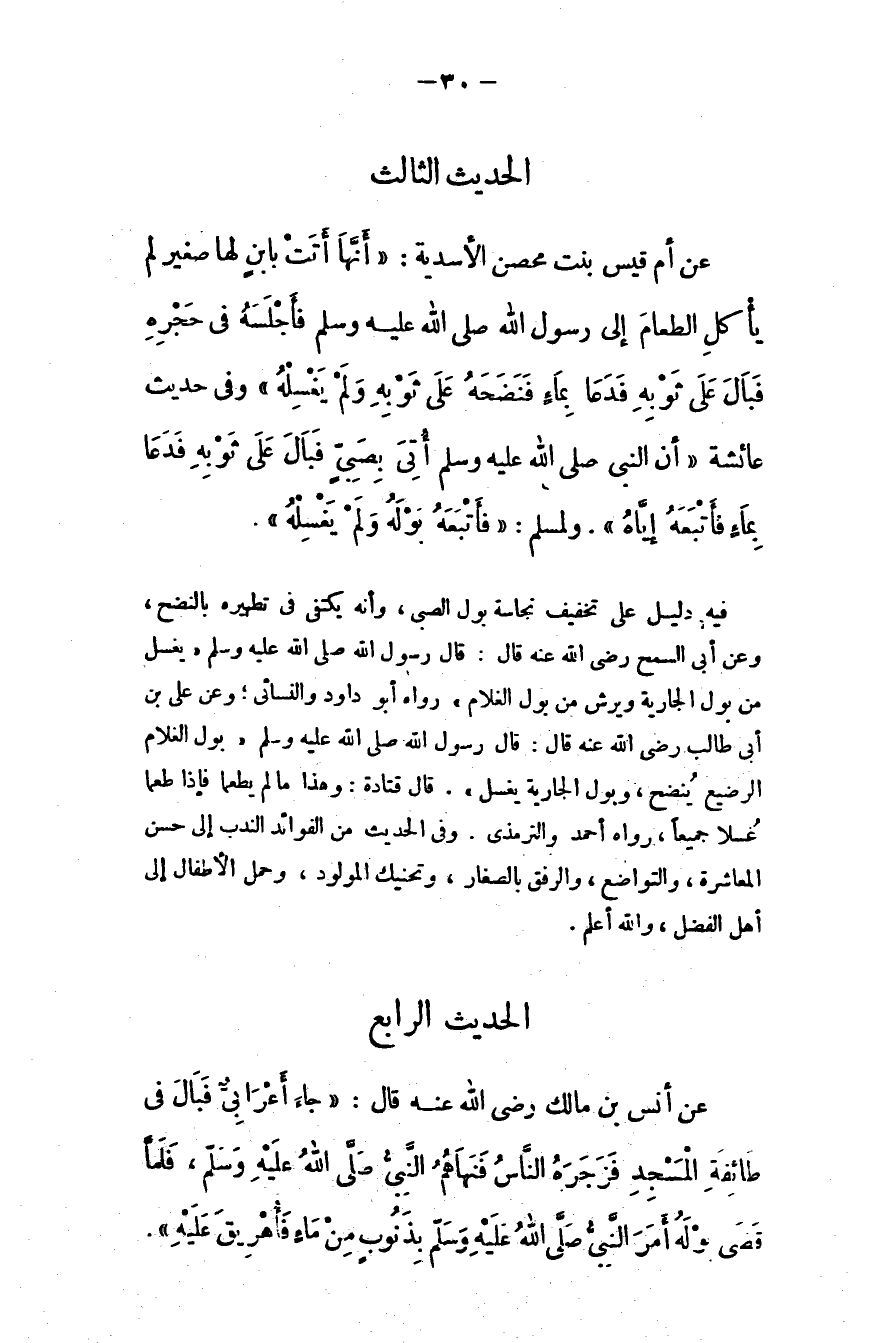 — ٣٠ —
الحديث الثالث
عن أم قيس بنت محصن الأسدية : « أَنَّهَا أَتَتْ بابنٍ لها صغير لم
يأكلِ الطعامَ إلى رسول الله صلى الله عليه وسلم فأَجْلَسَهُ فى حَجْرِهِ
فَبَالَ عَلَى ثَوْبِهِ فَدَعَا بِمَاءٍ فَنَضَحَهُ عَلَى ثَوْبِهِ وَلَمْ يَغْسِلْهُ » وفى حديث
عائشة « أن النبى صلى الله عليه وسلم أُتِىَ بِصَبِىٍّ فَبَالَ عَلَى ثَوْبِهِ فَدَعَا
بِمَاءٍ فَأَتْبَعَهُ إِيَّاهُ » . ولمسلم : « فأَتْبَعَهُ بَوْلَهُ وَلَمْ يَغْسِلْهُ » .
فيه دليل على تخفيف نجاسة بول الصبى ، وأنه يكتفى فى تطهيره بالنضح ،
وعن أبى السمح رضى الله عنه قال : قال رسول الله صلى الله عليه وسلم « يغسل
من بول الجارية ويرش من بول الغلام » رواه أبو داود والنسائى ؛ وعن على بن
أبى طالب رضى الله عنه قال : قال رسول الله صلى الله عليه وسلم « بول الغلام
الرضيع يُنضح ، وبول الجارية يغسل » . قال قتادة : وهذا ما لم يطعما فإذا طعما
غُسلا جميعاً ، رواه أحمد والترمذى . وفى الحديث من الفوائد الندب إلى حسن
المعاشرة ، والتواضع ، والرفق بالصغار ، وتحنيك المولود ، وحمل الأطفال إلى
أهل الفضل ، والله أعلم .
الحديث الرابع
عن أنس بن مالك رضى الله عنه قال : « جاء أَعْرَابِىٌّ فَبَالَ فى
طَائِفَةِ الْمَسْجِدِ فَزَجَرَهُ النَّاسُ فَنَهَاهُمُ النَّبِىُّ صَلَّى اللهُ عَلَيْهِ وَسَلَّمَ ، فَلَمَّا
قَضَى بَوْلَهُ أَمَرَ النَّبِىُّ صَلَّى اللهُ عَلَيْهِ وَسَلَّمَ بِذَنُوبٍ مِنْ مَاءٍ فَأُهْرِيقَ عَلَيْهِ » .